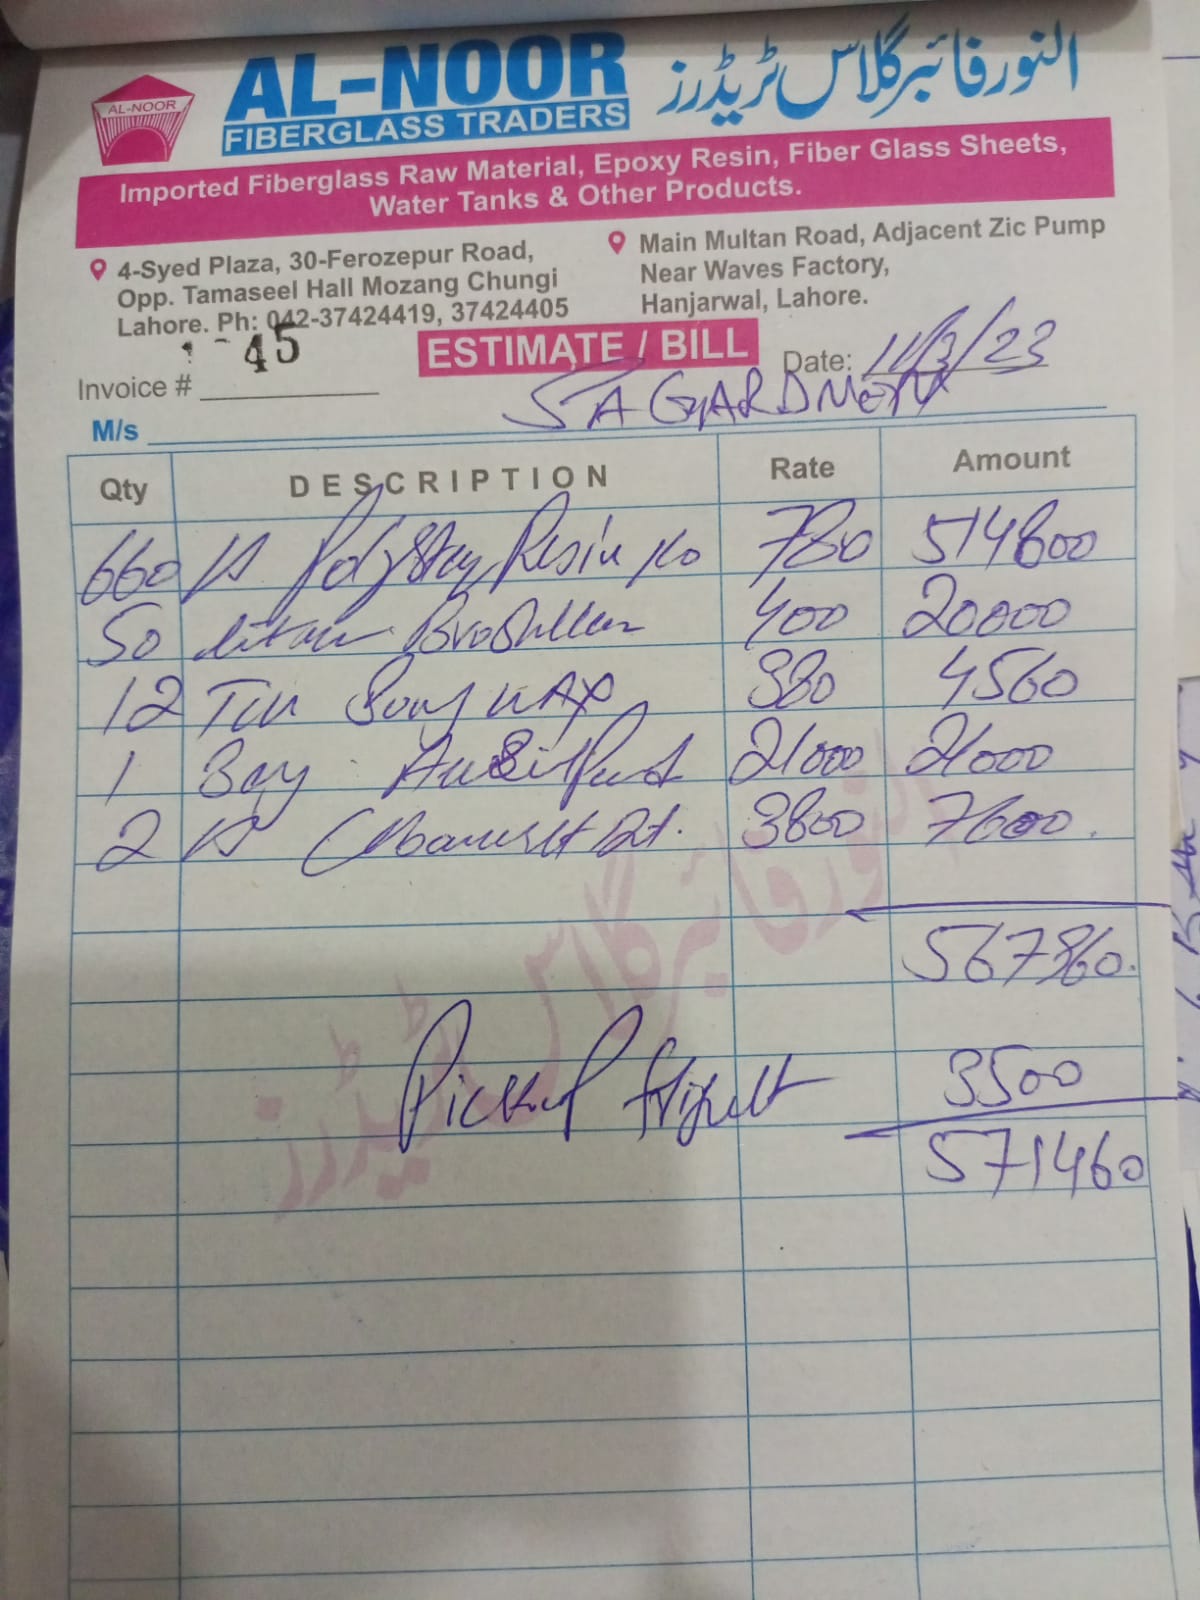 AL-NOOR
AL-NOOR
FIBERGLASS TRADERS
النور فائبر گلاس ٹریڈرز
Imported Fiberglass Raw Material, Epoxy Resin, Fiber Glass Sheets,
Water Tanks & Other Products.
4-Syed Plaza, 30-Ferozepur Road,
Opp. Tamaseel Hall Mozang Chungi
Lahore. Ph: 042-37424419, 37424405
Main Multan Road, Adjacent Zic Pump
Near Waves Factory,
Hanjarwal, Lahore.
Invoice # 45
ESTIMATE / BILL
Date: 11/3/23
M/s
Qty DESCRIPTION Rate Amount
660 Resin 780 514800
50 400 20000
12 Tin WAX 380 4560
1 Bag 21000 21000
2 3800 7600
النور فائبر گلاس ٹریڈرز
Pickup 3500
571460